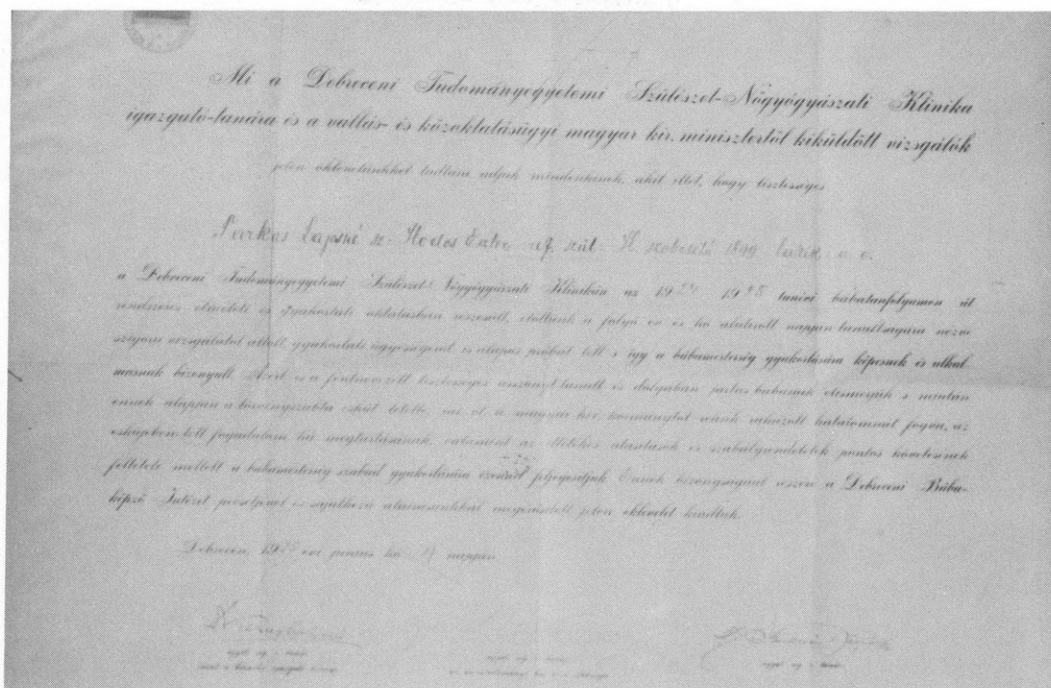 Mi a Debreceni Tudományegyetemi Szülészet-Nőgyógyászati Klinika
igazgató-tanára és a vallás- és közoktatásügyi magyar kir. minisztertől kiküldött vizsgálók
jelen oklevelünkkel tudtára adjuk mindenkinek, akit illet, hogy tisztességes
Farkas Lajosné sz. Hodos Eszter ref. szül. H. 1899
a Debreceni Tudományegyetemi Szülészet-Nőgyógyászati Klinikán az 1924 1925 tanévi bábatanfolyamon át
rendszeres elméleti és gyakorlati oktatásban részesült, előttünk a folyó év és hó alulírott napján tanultságára nézve
szigorú vizsgálatot állott, gyakorlati ügyességéről is alapos próbát tett s így a bábamesterség gyakorlására képesnek és alkal-
masnak bizonyult. Azért is a fentnevezett tisztességes asszonyt tanult és dolgában jártas bábának elismerjük s miután
ennek alapján a törvényszabta esküt letette, mi őt a magyar kir. kormánytól reánk ruházott hatalomnál fogva, az
esküjében tett fogadalom hű megtartásának, valamint az illetékes utasítások és szabályrendeletek pontos követésének
feltétele mellett a bábamesterség szabad gyakorlására ezennel feljogosítjuk. Ennek bizonyságául részére a Debreceni Bába-
képző Intézet pecsétjével és sajátkezű aláírásunkkal megerősített jelen oklevelet kiadtuk.
Debrecen, 1925 évi junius hó napján